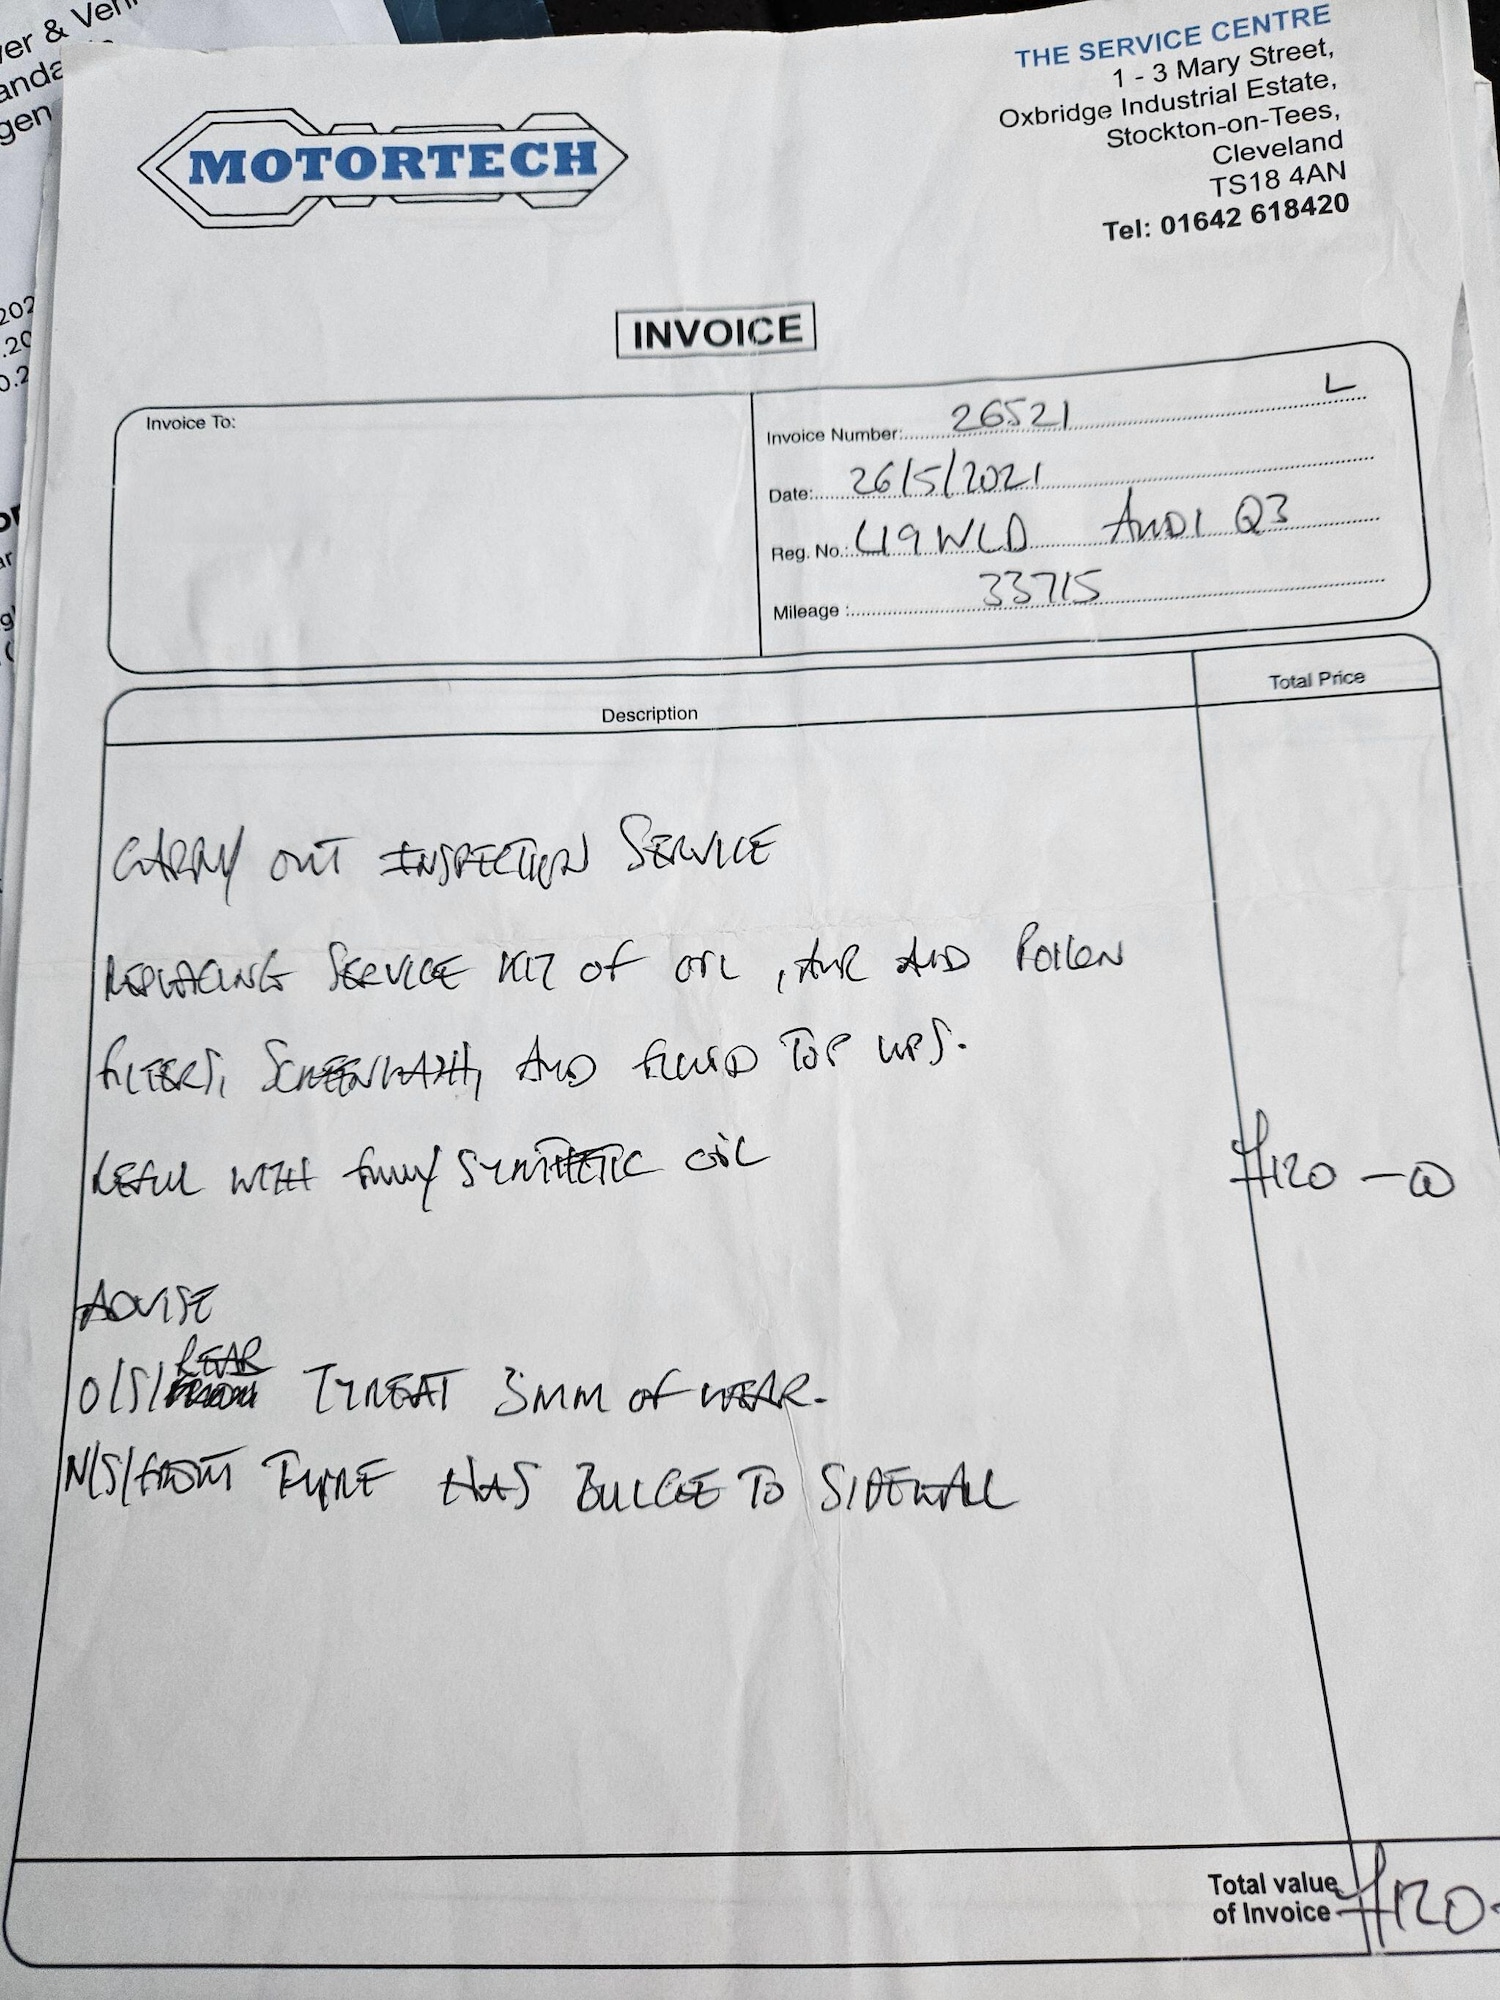 THE SERVICE CENTRE
1 - 3 Mary Street,
Oxbridge Industrial Estate,
Stockton-on-Tees,
Cleveland
TS18 4AN
Tel: 01642 618420
MOTORTECH
INVOICE
Invoice To:
Invoice Number: 26521 L
Date: 26/5/2021
Reg. No.: L19 WLD AUDI Q3
Mileage : 33715
Description
Total Price
CARRY OUT INSPECTION SERVICE
REPLACING SERVICE KIT OF OIL, AIR AND POLLEN
FILTERS, SCREENWASH, AND FLUID TOP UPS.
REFILL WITH FULLY SYNTHETIC OIL
£120 - 00
ADVISE
REAR
O/S/ TYRE AT 3MM OF WEAR.
N/S/FRONT TYRE HAS BULGE TO SIDEWALL
Total value
of Invoice
£120-